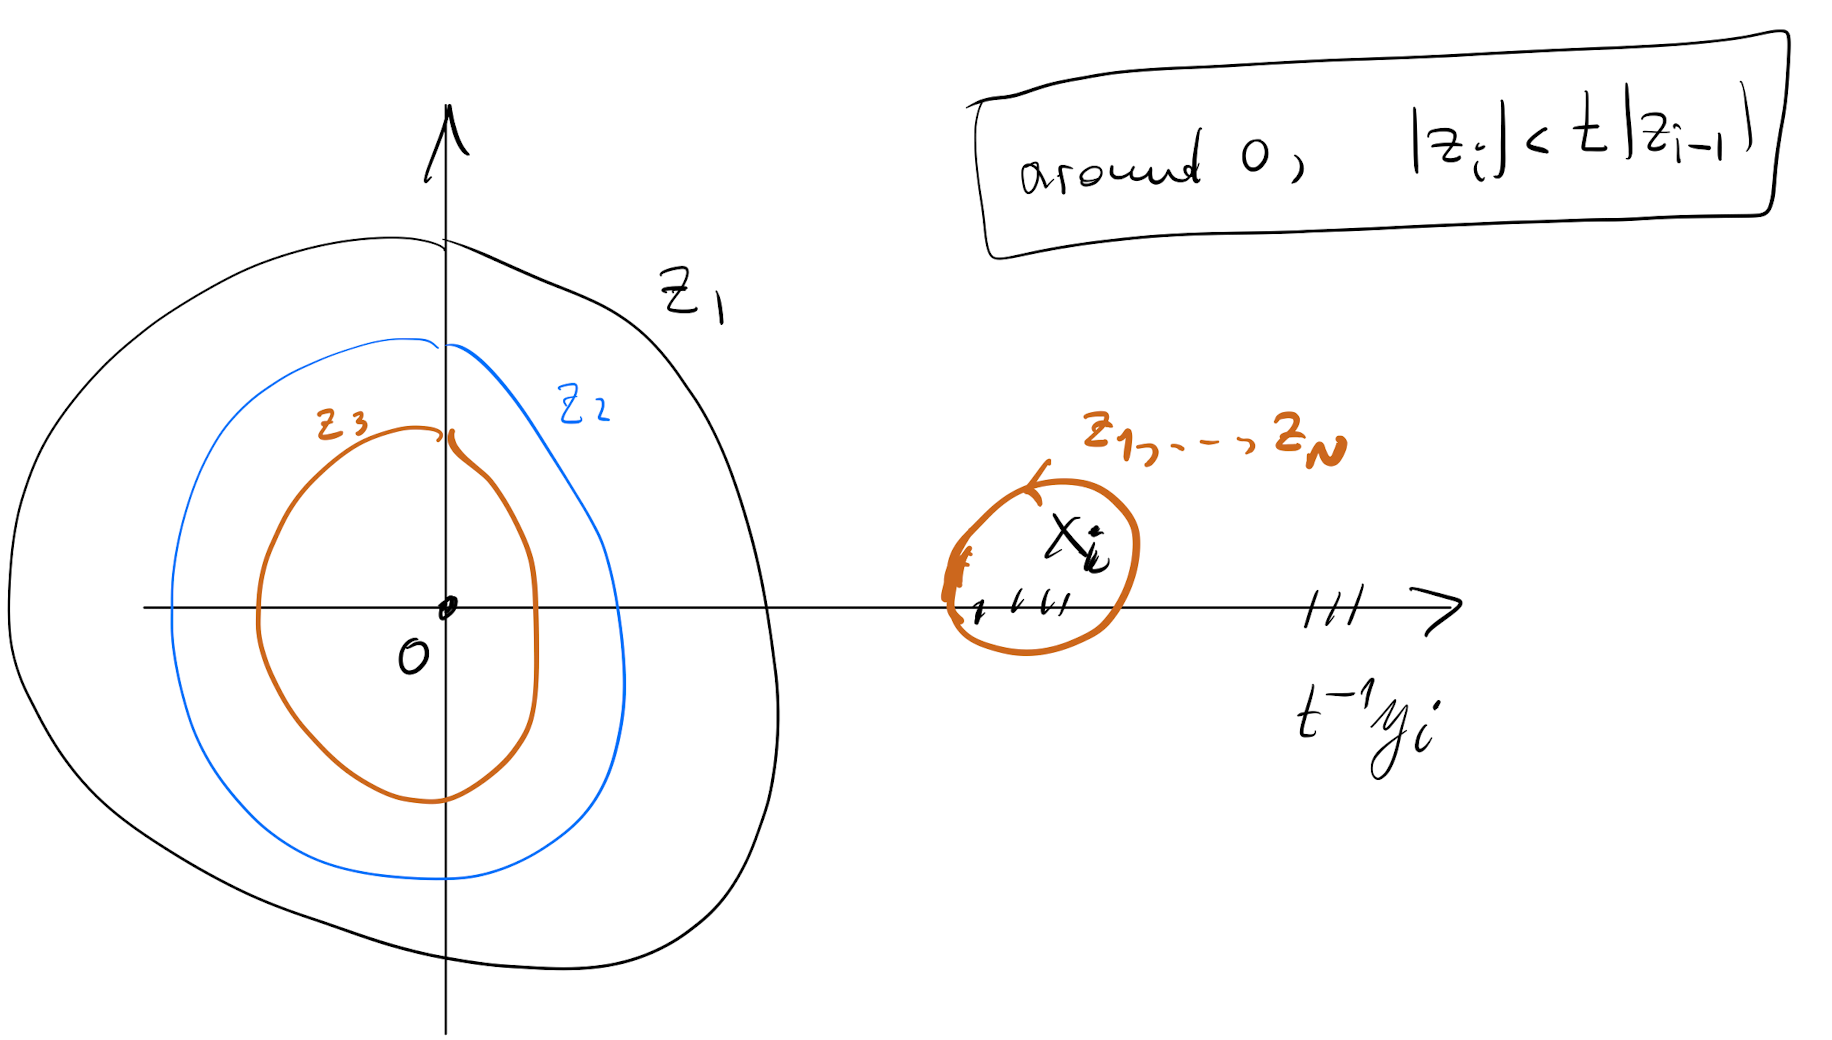 around 0, |z_i| < t |z_{i-1}|
z_1
z_2
z_3
z_1, ..., z_N
x_i
0
t^{-1} y_i